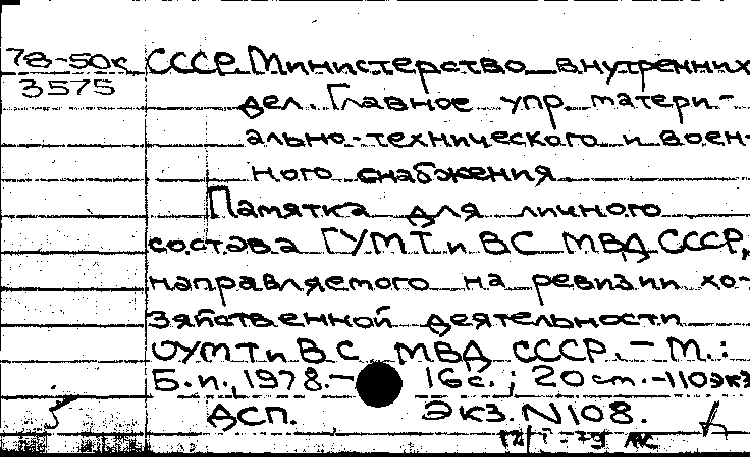 78-50к СССР. Министерство внутренних
3575
дел. Главное упр. матери-
ально-технического и воен-
ного снабжения
Памятка для личного
состава ГУМТ и ВС МВД СССР,
направляемого на ревизии хо-
зяйственной деятельности
ОУМТ и ВС МВД СССР. – М.:
Б.и., 1978. – 16 с.; 20 см. – 110 экз
ДСП. Экз. N 108.